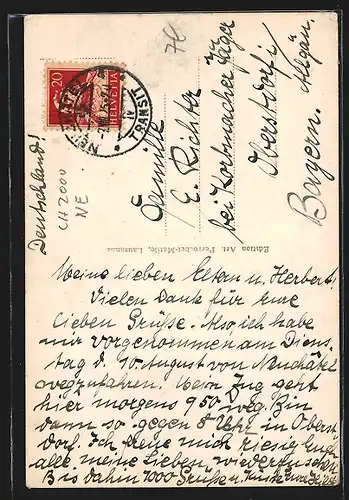 7L
20
HELVETIA
NEUCHATEL
TRANSIT
Deutschland!
CH 2000
NE
Familie
E. Richter
bei Korbmacher Jäger
Oberstdorf i/
Allgäu.
Bayern.
Edition Art. Perrochet-Matile, Lausanne
Meine lieben Eltern u. Herbert!
Vielen Dank für Eure
lieben Grüße. Also, ich habe
mir vorgenommen am Diens-
tag d. 10. August von Neuchâtel
wegzufahren! Mein Zug geht
hier morgens 9 50 weg. Bin
dann so gegen 8 Uhr in Oberst-
dorf. Ich freue mich riesig Euch
alle meine Lieben, wiederzusehen.
Bis dahin 1000 Grüße u. Küsse Eure